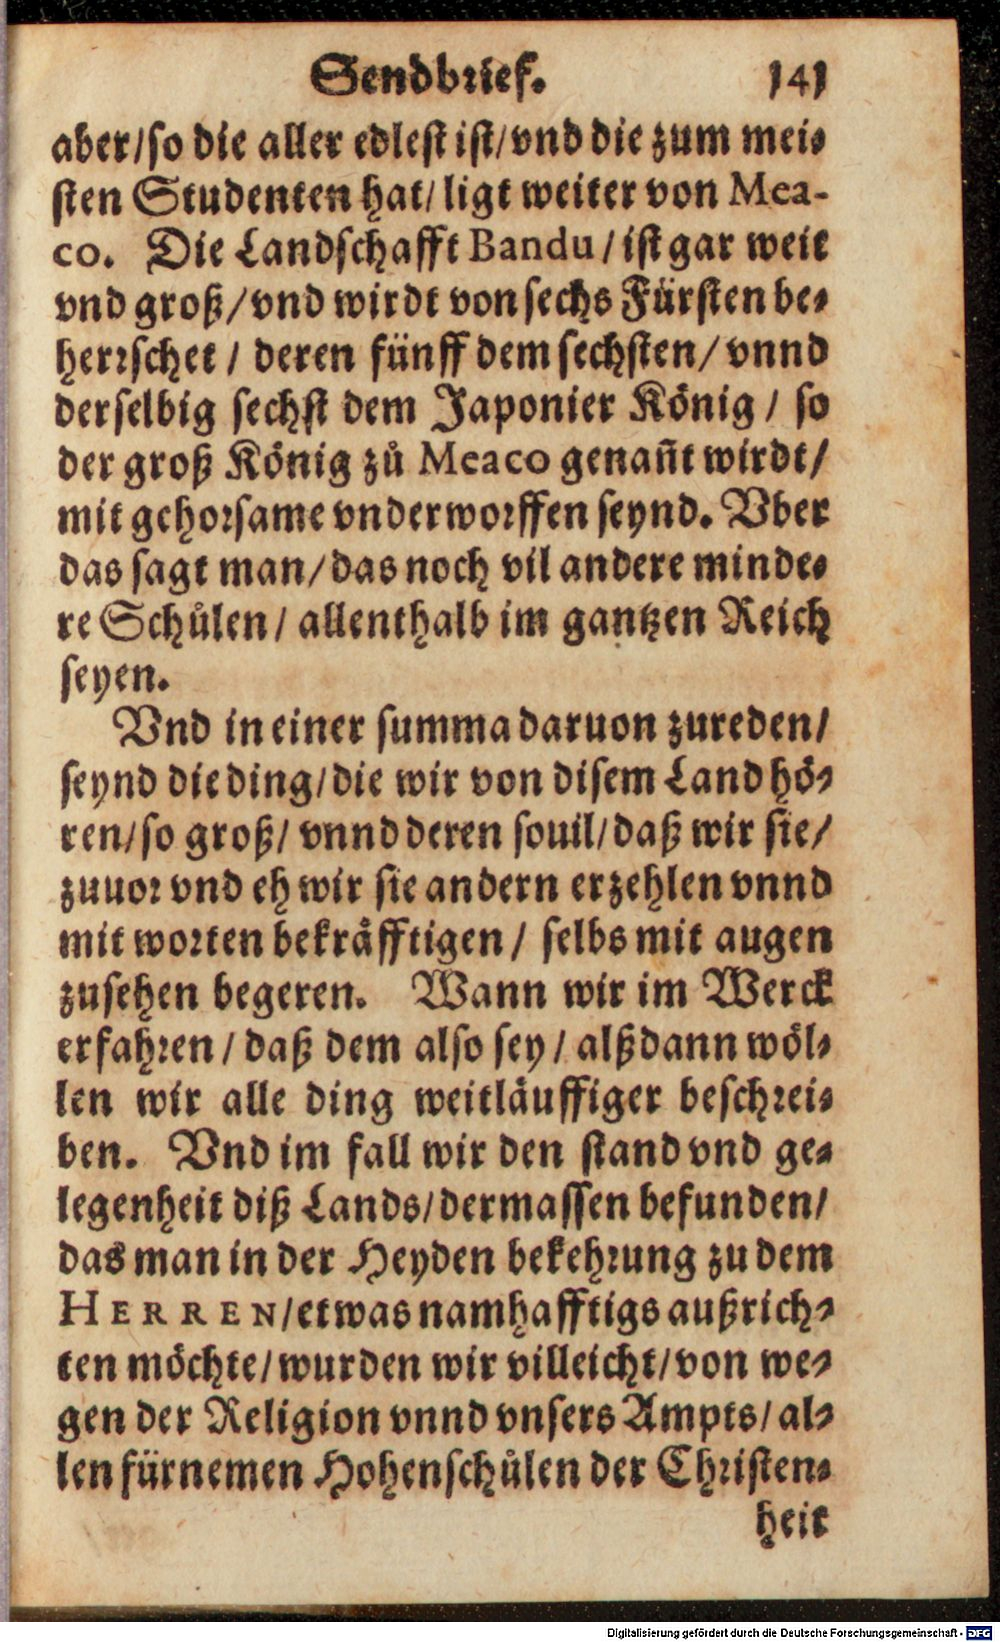 Sendbrief. 141
aber/so die aller edlest ist/vnd die zum mei-
sten Studenten hat/ ligt weiter von Mea-
co. Die Landschafft Bandu/ ist gar weit
vnd groß/vnd wirdt von sechs Fürsten be-
herrschet/ deren fünff dem sechsten/ vnnd
derselbig sechst dem Japonier König/ so
der groß König zů Meaco genañt wirdt/
mit gehorsame vnderworffen seynd. Vber
das sagt man/das noch vil andere minde-
re Schůlen/ allenthalb im gantzen Reich
seyen.
Vnd in einer summa daruon zureden/
seynd die ding/die wir von disem Land hö-
ren/so groß/ vnnd deren souil/daß wir sie/
zuuor vnd eh wir sie andern erzehlen vnnd
mit worten bekräfftigen/ selbs mit augen
zusehen begeren. Wann wir im Werck
erfahren/ daß dem also sey/ alßdann wöl-
len wir alle ding weitläuffiger beschrei-
ben. Vnd im fall wir den stand vnd ge-
legenheit diß Lands/dermassen befunden/
das man in der Heyden bekehrung zu dem
HERREN/etwas namhafftigs außrich-
ten möchte/wurden wir villeicht/von we-
gen der Religion vnnd vnsers Ampts/ al-
len fürnemen Hohenschůlen der Christen-
heit
Digitalisierung gefördert durch die Deutsche Forschungsgemeinschaft - DFG